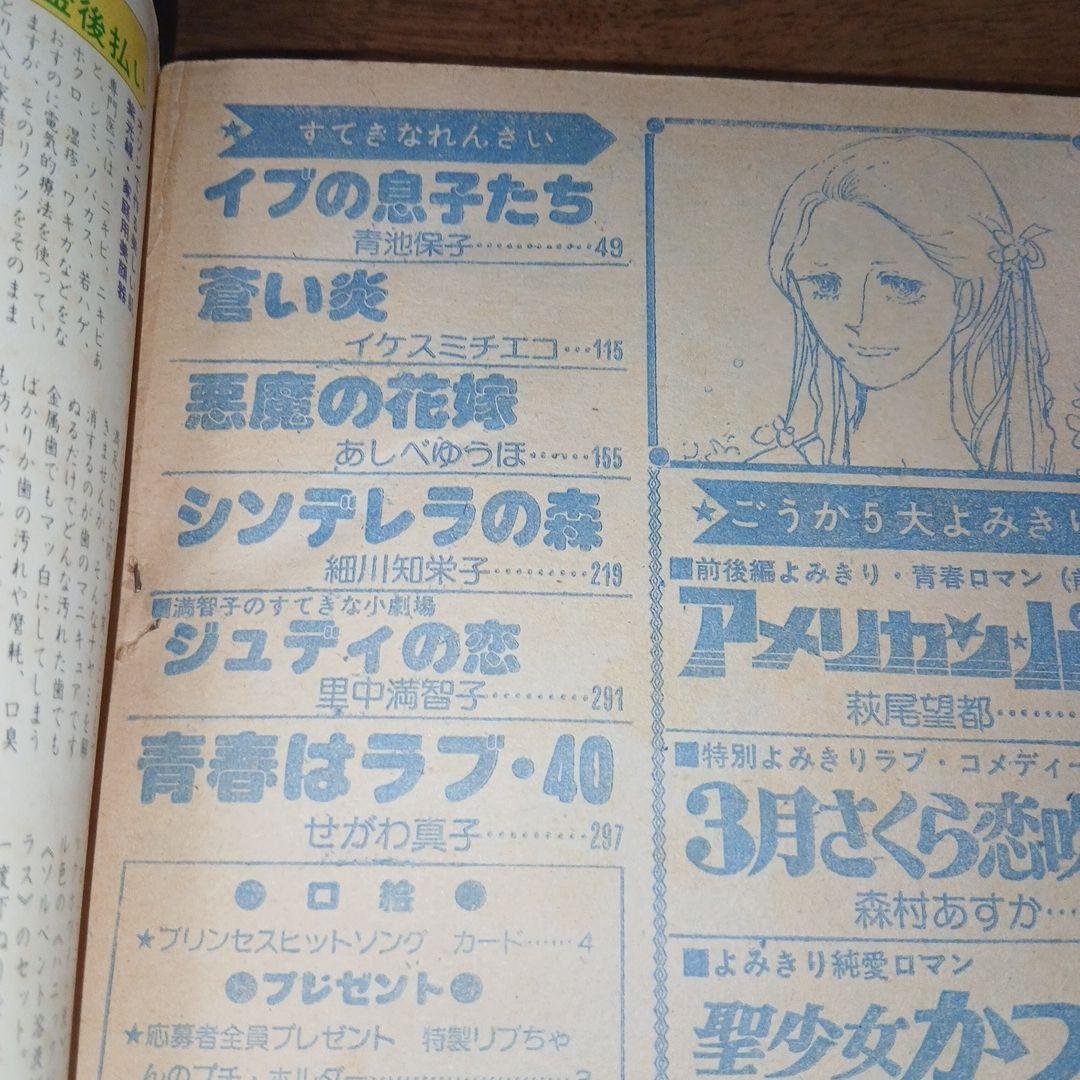 すてきなれんさい
イブの息子たち
青池保子…………49
蒼い炎
イケスミチエコ…115
悪魔の花嫁
あしべゆうほ……155
シンデレラの森
細川知栄子…………219
■満智子のすてきな小劇場
ジュディの恋
里中満智子…………291
青春はラブ・40
せがわ真子…………297
●口絵●
★プリンセスヒットソング カード……4
●プレゼント●
★応募者全員プレゼント 特製リブちゃ
んのプチ・ホルダー…………3
★ごうか5大よみき
■前後編よみきり・青春ロマン(前
アメリカン★パ
萩尾望都…………
■特別よみきりラブ・コメディー
3月さくら恋
森村あすか…
■よみきり純愛ロマン
聖少女かつ
金後払い
紫光線・家庭用美顔器
専門医では、ニキビ、ニキビあ
と、シミ、ソバカス、若ハゲ、
ホクロ、湿疹、ワキガなどをな
おすのに電気的療法を使ってい
ますが、そのリクツをそのまま
消するのが歯のマニキュアです
ぬるだけでどんな汚れた歯でも
金属歯でもマッ白にしてしまう
ばかりか歯の汚れや磨耗、口臭